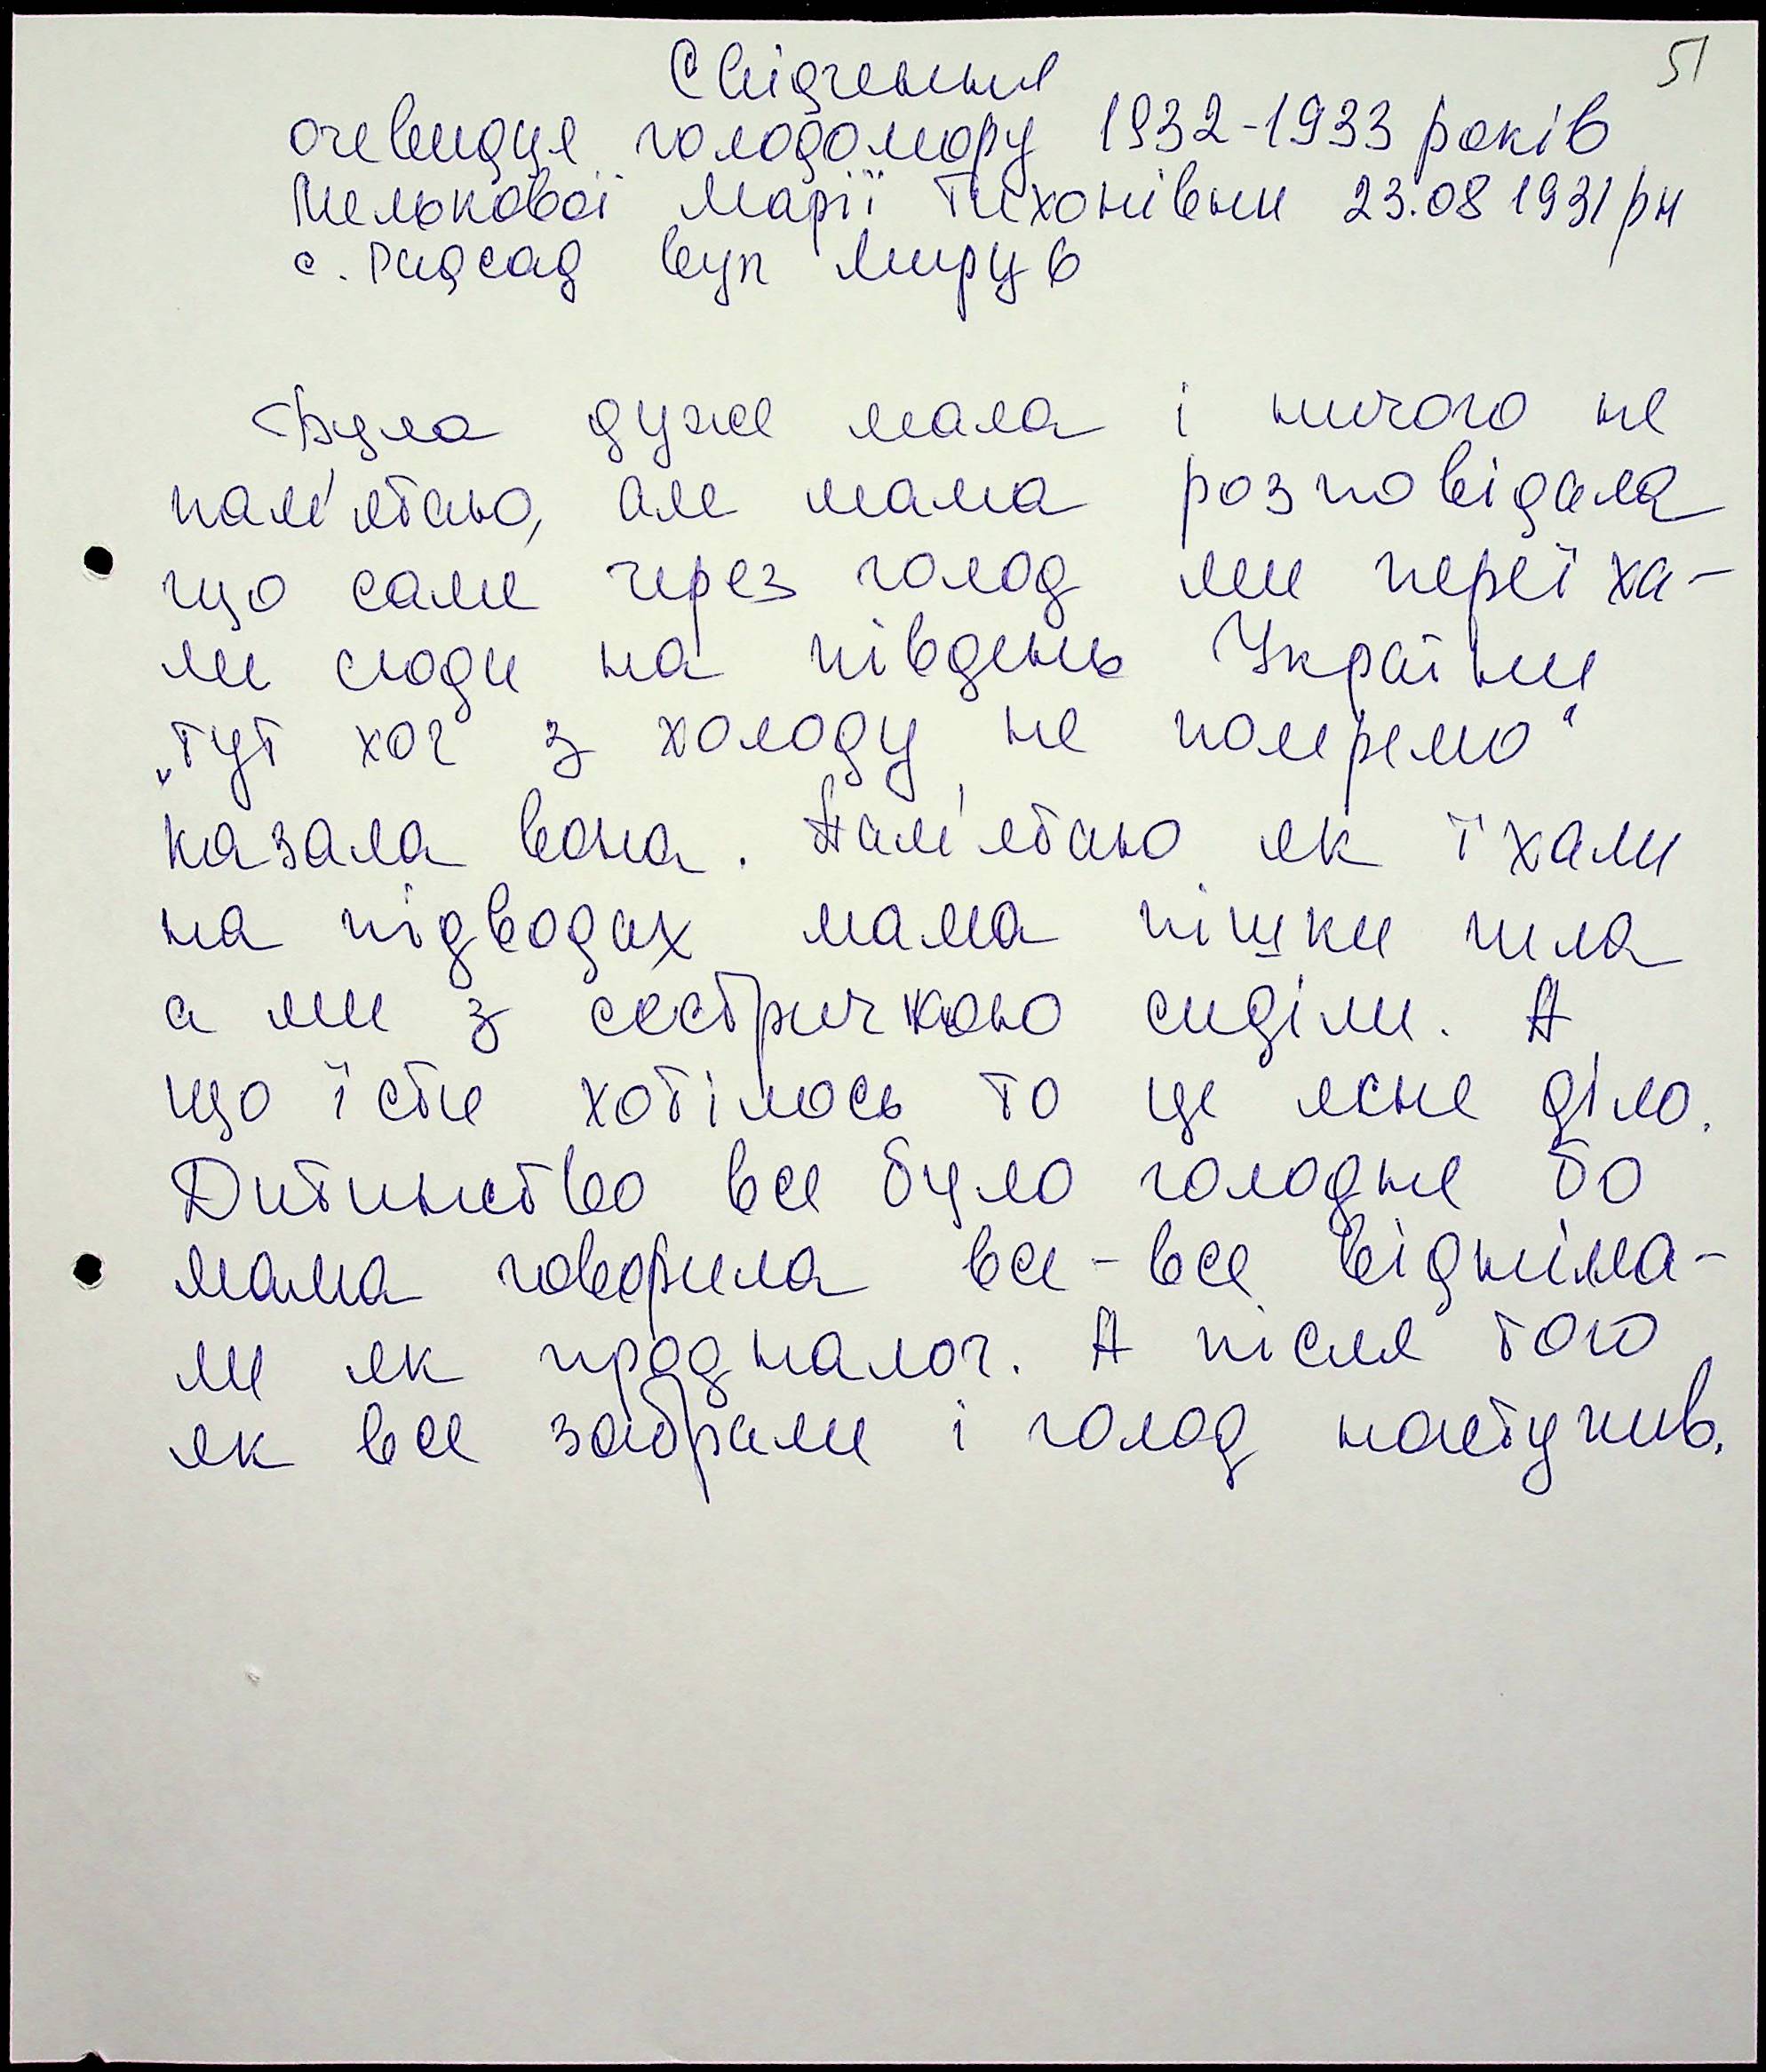 51
Свідчення
очевидця голодомору 1932-1933 років
Мелькової Марії Тихонівни 23.08 1931 рн
с. Радсад вул Миру 6
Була дуже мала і ничого не
пам'ятаю, але мама розповідала
що саме через голод ми переїха-
ли сюди на південь України
„тут хоч з холоду не помремо“
казала вона. Пам'ятаю як їхали
на підводах мама пішки шла
а ми з сестричкою сиділи. А
що їсти хотілось то це ясне діло.
Дитинство все було голодне бо
мама говорила все-все відніма-
ли як продналог. А після того
як все забрали і голод наступив.